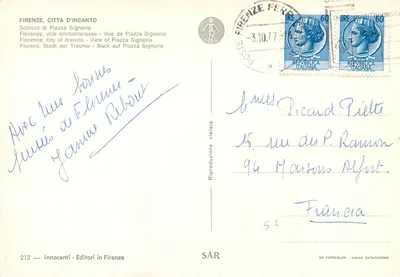 FIRENZE, CITTÀ D'INCANTO
Scorcio di Piazza Signoria
Florence, ville enchanteresse - Vue de Piazza Signoria
Florence, city of dreams - View of Piazza Signoria
Florenz, Stadt der Träume - Blick auf Piazza Signoria
POSTE FIRENZE FERR
-3.10.77
60
60
Avec mes bonnes
pensées de Florence
Janine
Riproduzione vietata
Picard
15 rue du P. Ramon
94 Maisons Alfort
Francia
212 - Innocenti - Editori in Firenze
SAR
DA FOTOCOLOR KODAK EKTACHROME